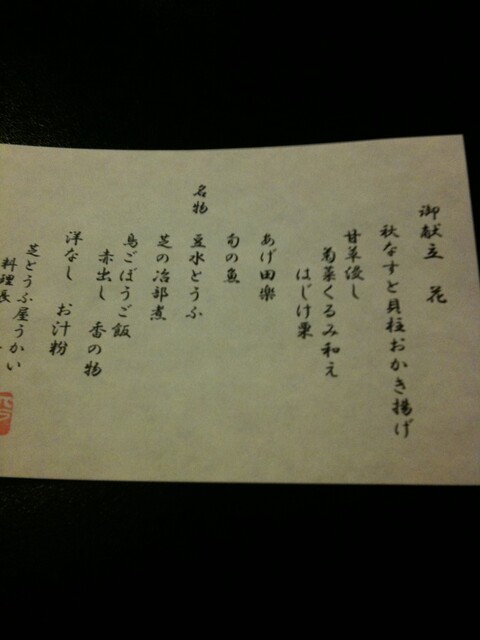 御献立 花
秋なすと貝柱おかき揚げ
甘草浸し
菊菜くるみ和え
はじけ栗
あげ田楽
旬の魚
名物 豆水とうふ
芝の冶部煮
鳥ごぼうご飯
赤出し 香の物
洋なし お汁粉
芝とうふ屋うかい
料理長